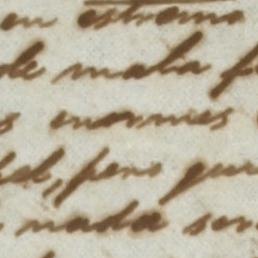 en estremo
de mala f
s enormes
el, pero que
nada sen